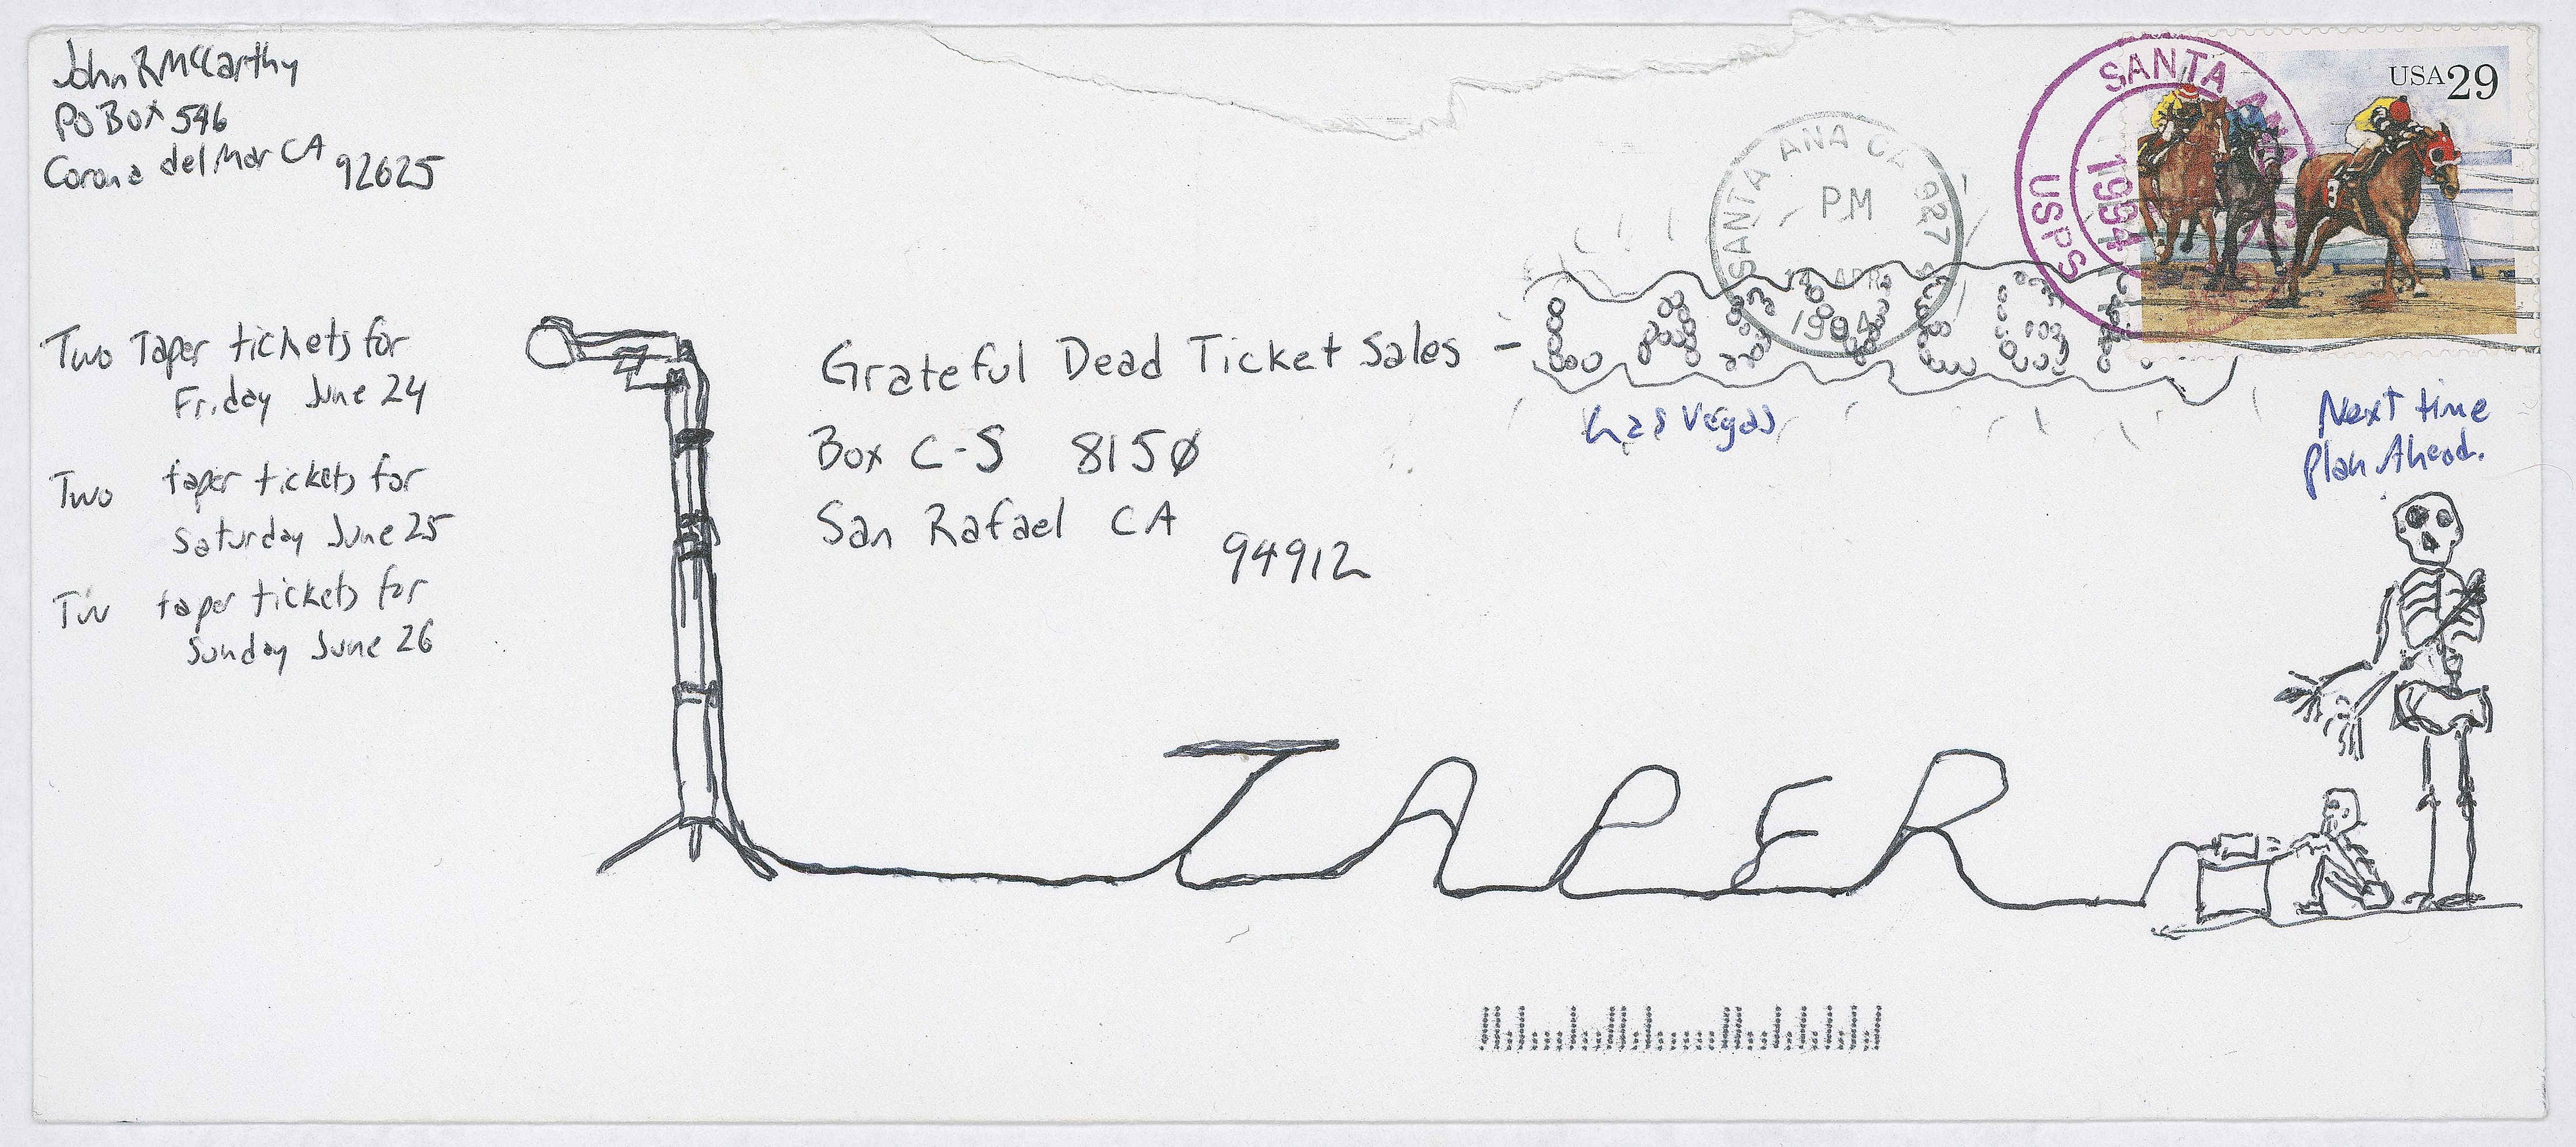 John R McCarthy
PO Box 546
Corona del Mar CA 92625
SANTA ANA CA
USPS
1994
USA 29
SANTA ANA CA 927
PM
APR
1994
Two Taper tickets for
Friday June 24
Two taper tickets for
Saturday June 25
Tw taper tickets for
Sunday June 26
Grateful Dead Ticket Sales -
Box C-S 8150
San Rafael CA
94912
Las Vegas
Next time
Plan Ahead.
3
TAPER